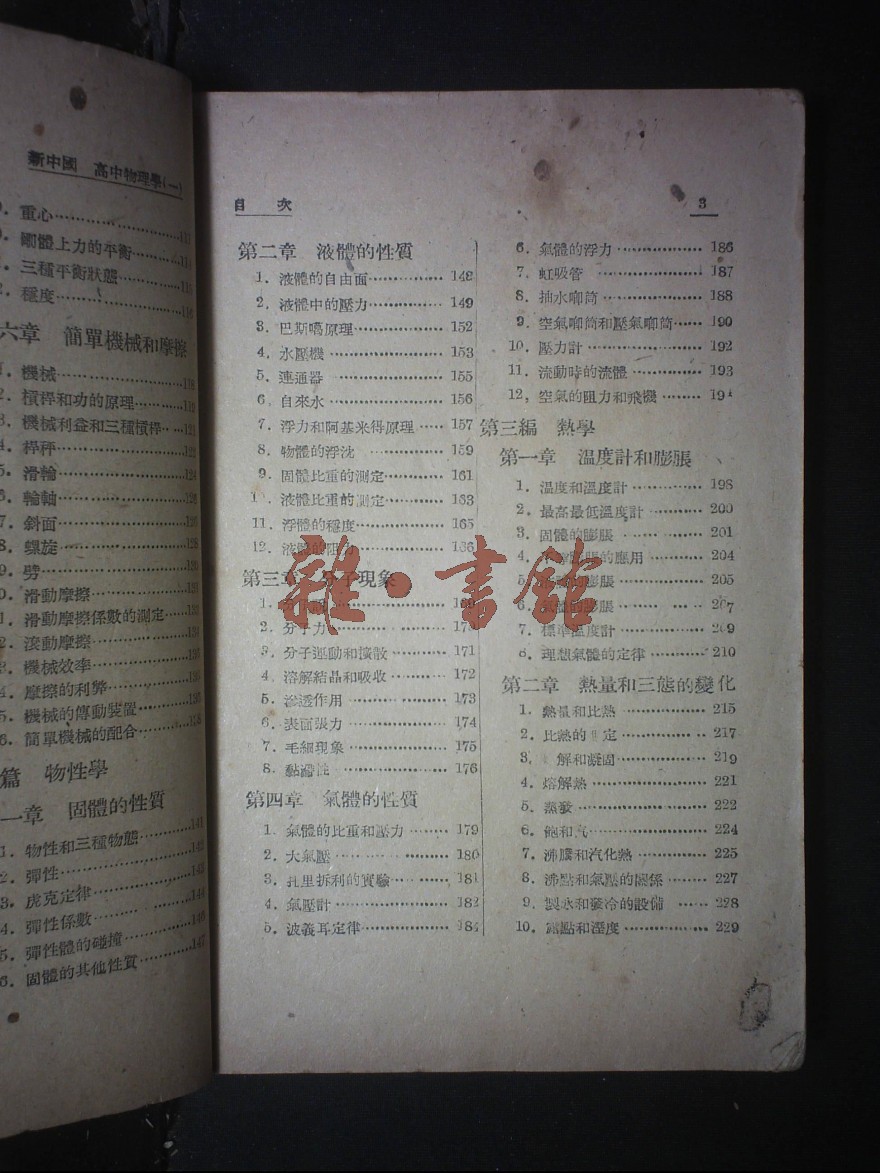 新中國 高中物理學(一)
重心
剛體上力的平衡
三種平衡狀態
穩度
六章 簡單機械和摩擦
機械 118
槓桿和功的原理
機械利益和三種槓桿
桿秤
5. 滑輪
6. 輪軸
7. 斜面
8. 螺旋
9. 劈
滑動摩擦
滑動摩擦係數的測定
滾動摩擦
機械效率
摩擦的利弊
5. 機械的傳動裝置
6. 簡單機械的配合
篇 物性學
一章 固體的性質
1. 物性和三種物態 141
2. 彈性 142
3. 虎克定律 143
4. 彈性係數
5. 彈性體的碰撞 146
6. 固體的其他性質 147
目 次 3
第二章 液體的性質
1. 液體的自由面 148
2. 液體中的壓力 149
3. 巴斯噶原理 152
4. 水壓機 153
5. 連通器 155
6. 自來水 156
7. 浮力和阿基米得原理 157
8. 物體的浮沈 159
9. 固體比重的測定 161
液體比重的測定 163
11. 浮體的穩度 165
12. 液體的阻力 166
第三章 分子現象
1.
2. 分子力
3. 分子運動和擴散 171
4. 溶解結晶和吸收 172
5. 滲透作用 173
6. 表面張力 174
7. 毛細現象 175
8. 黏滯性 176
第四章 氣體的性質
1. 氣體的比重和壓力 179
2. 大氣壓 180
3. 托里拆利的實驗 181
4. 氣壓計 182
5. 波義耳定律
6. 氣體的浮力 186
7. 虹吸管 187
8. 抽水唧筒 188
9. 空氣唧筒和壓氣唧筒 190
10. 壓力計 192
11. 流動時的流體 193
12. 空氣的阻力和飛機
第三編 熱學
第一章 溫度計和膨脹
1. 溫度和溫度計 198
2. 最高最低溫度計 200
3. 固體的膨脹 201
4. 膨脹的應用 204
5. 的膨脹 205
6. 氣體的膨脹 207
7. 標準溫度計 209
8. 理想氣體的定律 210
第二章 熱量和三態的變化
1. 熱量和比熱 215
2. 比熱的 定 217
3. 解和凝固 219
4. 熔解熱 221
5. 蒸發 222
6. 飽和汽 224
7. 沸騰和汽化熱 225
8. 沸點和氣壓的關係 227
9. 製冰和發冷的設備 228
10. 露點和溼度 229
雜·書館